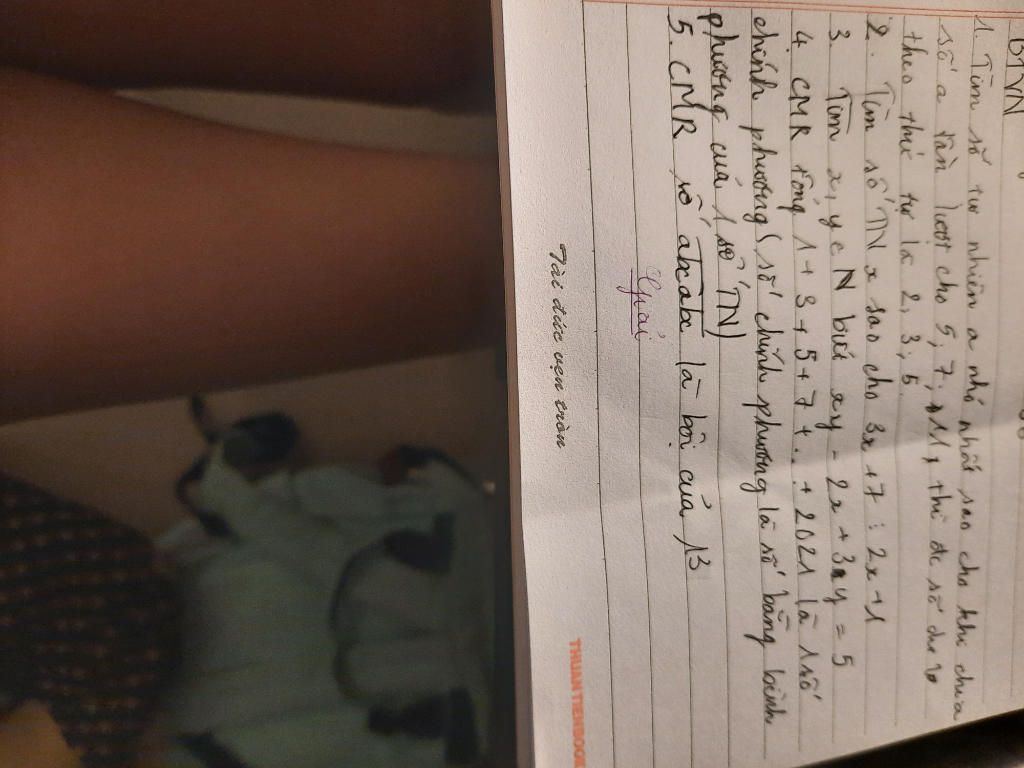 BTVN
1. Tìm số tự nhiên a nhỏ nhất sao cho khi chia
số a lần lượt cho 5, 7, 11, thì đc số dư
theo thứ tự là 2, 3, 5
2. Tìm số TN x sao cho 3x + 7 ⋮ 2x - 1
3. Tìm x, y ∈ N biết xy - 2x + 3y = 5
4. CMR tổng 1 + 3 + 5 + 7 + .. + 2021 là 1 số
chính phương (số chính phương là số bằng bình
phương của 1 số TN)
5. CMR số abcabc là bội của 13
Giải
Tài đức vẹn toàn